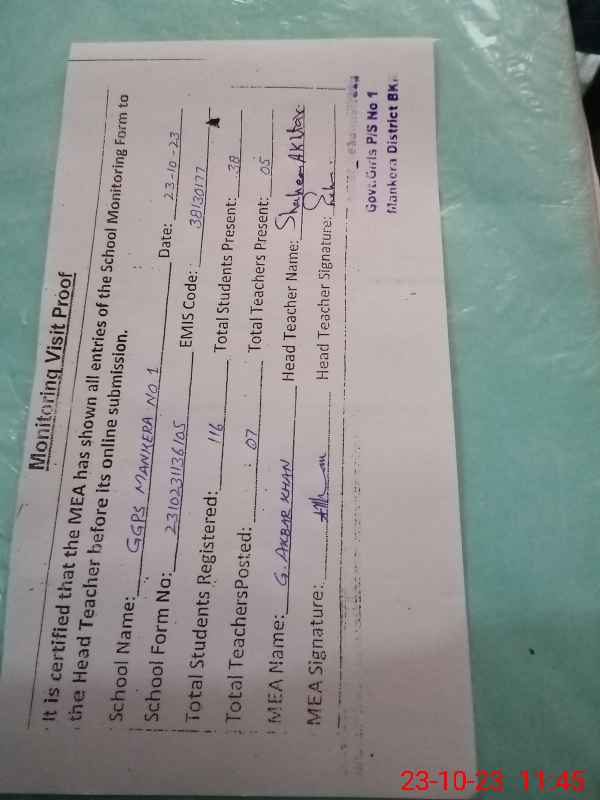 Monitoring Visit Proof
It is certified that the MEA has shown all entries of the School Monitoring Form to
the Head Teacher before its online submission.
School Name: GGPS MANKERA NO 1
School Form No: 2310231136105 Date: 23-10-23
Total Students Registered: 116 EMIS Code: 38130177
Total TeachersPosted: 07 Total Students Present: 38
Total Teachers Present: 05
MEA Name: G. AKBAR KHAN Head Teacher Name: Shaheen AKhtar
MEA Signature: Head Teacher Signature:
Govt.Girls P/S No 1
Mankera District BK
23-10-23 11:45